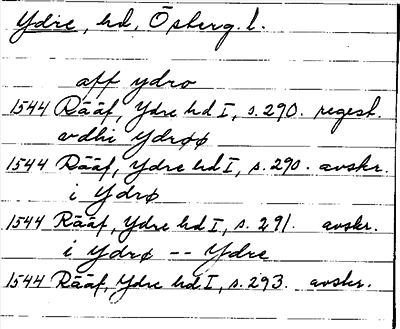 Ydre, hd, Östergl.
aff ydro
1544 Rääf, Ydre hd I, s. 290. regest.
vdhi Ydrøø
1544 Rääf, Ydre hd I, s. 290. avskr.
i Ydrø
1544 Rääf, Ydre hd I, s. 291. avskr.
i Ydrø -- Ydre
1544 Rääf, Ydre hd I, s. 293. avskr.